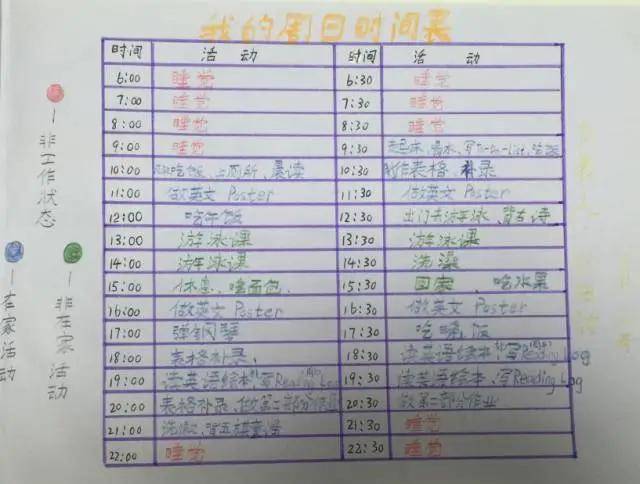 我的周日时间表
时间 活动 时间 活动
6:00 睡觉 6:30 睡觉
7:00 睡觉 7:30 睡觉
8:00 睡觉 8:30 睡觉
9:00 睡觉 9:30 起床、喝水、写To-Do-List、吃饭
10:00 吃饭、上厕所、晨读 10:30 制作表格、补录
11:00 做英文 Poster 11:30 做英文 Poster
12:00 吃午饭 12:30 出门去游泳、背古诗
13:00 游泳课 13:30 游泳课
14:00 游泳课 14:30 洗澡
15:00 休息、啃面包、 15:30 回家、吃水果
16:00 做英文 Poster 16:30 做英文 Poster
17:00 弹钢琴 17:30 吃晚饭
18:00 表格补录、 18:30 读英语绘本、写Reading Log
19:00 读英语绘本、写Reading Log 19:30 读英语绘本、写Reading Log
20:00 表格补录、做第二部分作业 20:30 做第二部分作业
21:00 洗漱、背 21:30 睡觉
22:00 睡觉 22:30 睡觉
—非工作状态
—在家活动
—非在家活动